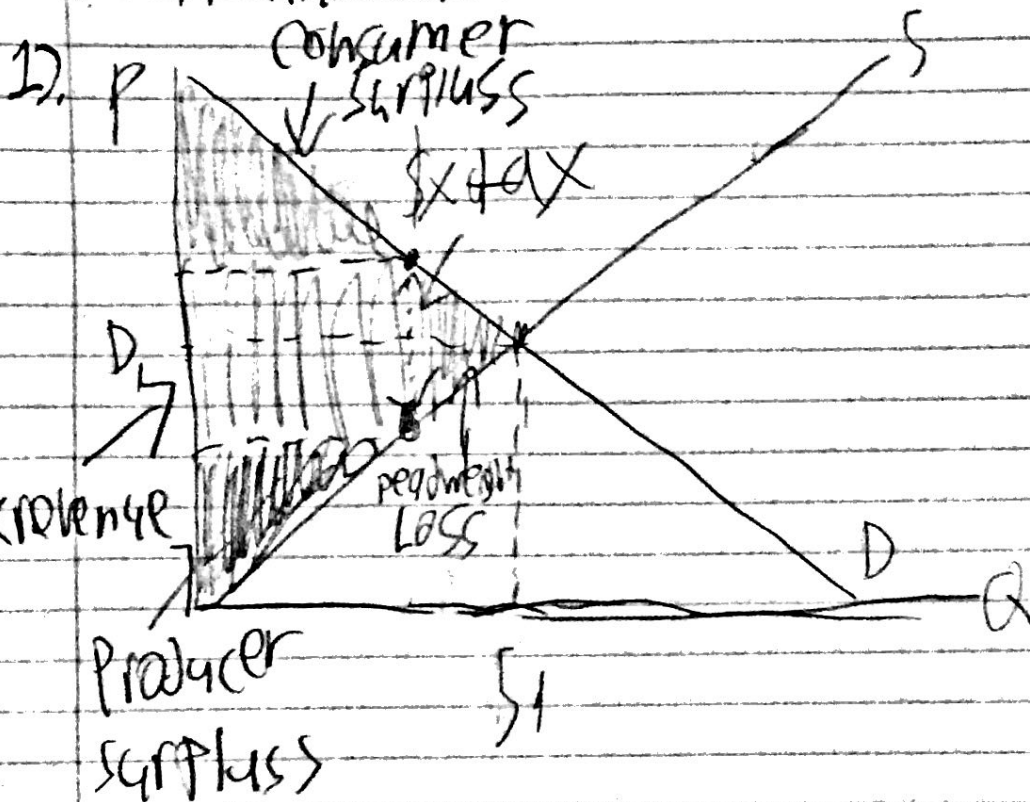 1).
P
consumer
surpluss
$x tax
S
D,
revenue
peadweight
Loss
D
Q
Producer
surpluss
S1